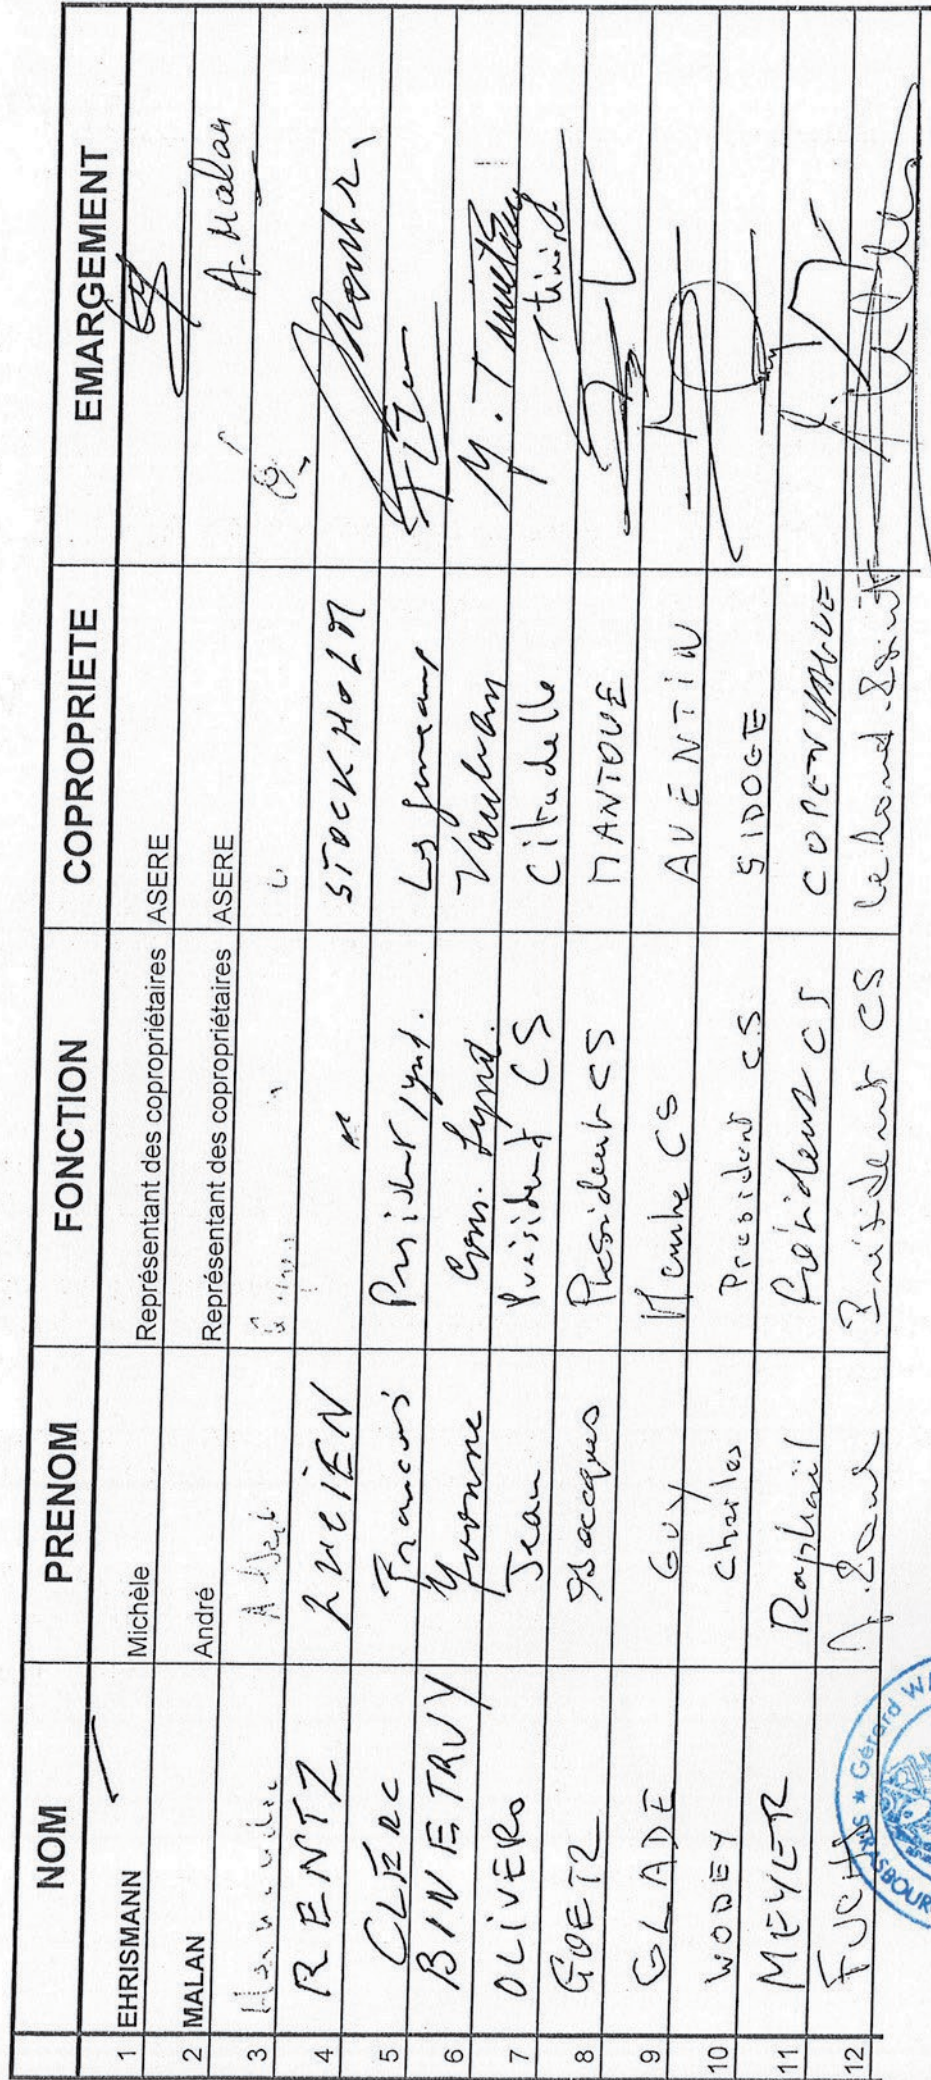 NOM PRENOM FONCTION COPROPRIETE EMARGEMENT
1 EHRISMANN Michèle Représentant des copropriétaires ASERE
2 MALAN André Représentant des copropriétaires ASERE A. Malan
3
4 RENTZ LUCIEN " STOCKHOLM
5 CLERC François Président Synd. Les Gémeaux
6 BINETRUY Yvonne Cons. Synd. Vauban
7 OLIVERO Jean Président CS Citadelle
8 GOETZ Jacques Président CS MANTOUE
9 GLADE GUY Membre CS AVENTIN
10 WODEY Charles President CS SIDOGE
11 MEYER Raphaël Président CS COPENHAGUE
12 FUCHS Président CS
STRASBOURG * Gérard WA